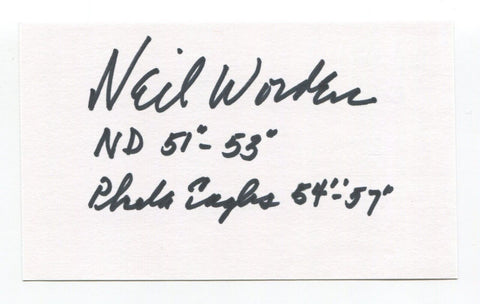 Neil Worden
ND 51"-53"
Phila Eagles 54"-57"